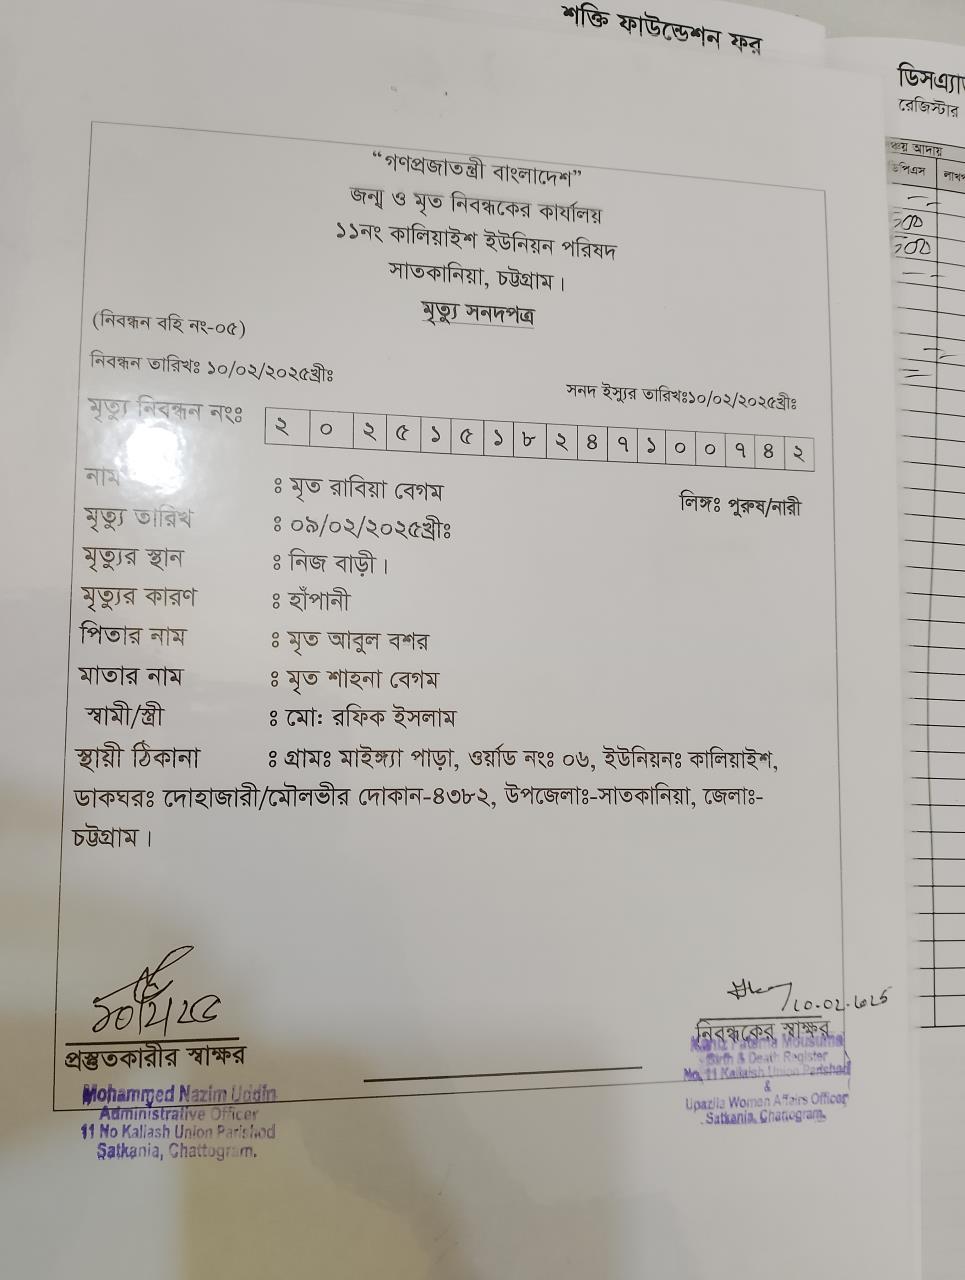 শক্তি ফাউন্ডেশন ফর
ডিসএ্যা
রেজিস্টার
আদায়
"গণপ্রজাতন্ত্রী বাংলাদেশ"
জন্ম ও মৃত নিবন্ধকের কার্যালয়
১১নং কালিয়াইশ ইউনিয়ন পরিষদ
সাতকানিয়া, চট্টগ্রাম।
মৃত্যু সনদপত্র
(নিবন্ধন বহি নং-০৫)
নিবন্ধন তারিখঃ ১০/০২/২০২৫খ্রীঃ
সনদ ইস্যুর তারিখঃ১০/০২/২০২৫খ্রীঃ
মৃত্যু নিবন্ধন নংঃ ২ ০ ২ ৫ ১ ৫ ১ ৮ ২ ৪ ৭ ১ ০ ০ ৭ ৪ ২
নাম ঃ মৃত রাবিয়া বেগম লিঙ্গঃ পুরুষ/নারী
মৃত্যু তারিখ ঃ ০৯/০২/২০২৫খ্রীঃ
মৃত্যুর স্থান ঃ নিজ বাড়ী।
মৃত্যুর কারণ ঃ হাঁপানী
পিতার নাম ঃ মৃত আবুল বশর
মাতার নাম ঃ মৃত শাহনা বেগম
স্বামী/স্ত্রী ঃ মো: রফিক ইসলাম
স্থায়ী ঠিকানা ঃ গ্রামঃ মাইঙ্গ্যা পাড়া, ওর্য়াড নংঃ ০৬, ইউনিয়নঃ কালিয়াইশ,
ডাকঘরঃ দোহাজারী/মৌলভীর দোকান-৪৩৮২, উপজেলাঃ-সাতকানিয়া, জেলাঃ-
চট্টগ্রাম।
প্রস্তুতকারীর স্বাক্ষর
Mohammed Nazim Uddin
Administrative Officer
11 No Kaliash Union Parishad
Satkania, Chattogram.
10-02-2025
নিবন্ধকের স্বাক্ষর
Birth & Death Register
No. 11 Kaliaish Union Parishad
&
Upazila Women Affairs Officer
Satkania, Chattogram.